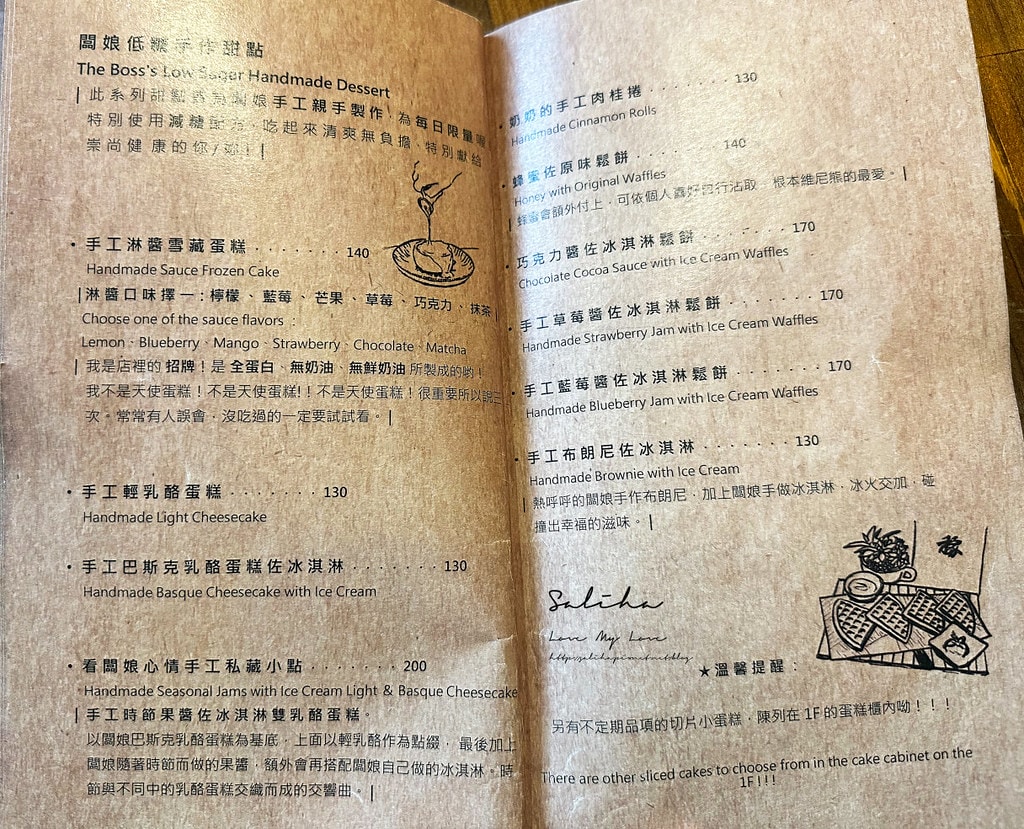 闆娘低糖手作甜點
The Boss's Low Suger Handmade Dessert
| 此系列甜點皆為闆娘手工親手製作，為每日限量喔
特別使用減糖配方，吃起來清爽無負擔、特別獻給
崇尚健康的你/妳！|
• 手工淋醬雪藏蛋糕 ········ 140
Handmade Sauce Frozen Cake
|淋醬口味擇一：檸檬、藍莓、芒果、草莓、巧克力、抹茶|
Choose one of the sauce flavors：
Lemon、Blueberry、Mango、Strawberry、Chocolate、Matcha
| 我是店裡的 招牌！是 全蛋白、無奶油、無鮮奶油 所製成的喲！
我不是天使蛋糕！不是天使蛋糕!！不是天使蛋糕！很重要所以說三
次。常常有人誤會，沒吃過的一定要試試看。|
• 手工輕乳酪蛋糕 ········ 130
Handmade Light Cheesecake
• 手工巴斯克乳酪蛋糕佐冰淇淋 ········ 130
Handmade Basque Cheesecake with Ice Cream
• 看闆娘心情手工私藏小點 ········ 200
Handmade Seasonal Jams with Ice Cream Light & Basque Cheesecake
| 手工時節果醬佐冰淇淋雙乳酪蛋糕。
以闆娘巴斯克乳酪蛋糕為基底，上面以輕乳酪作為點綴， 最後加上
闆娘隨著時節而做的果醬，額外會再搭配闆娘自己做的冰淇淋。時
節與不同中的乳酪蛋糕交織而成的交響曲。|
• 奶奶的手工肉桂捲 ········ 130
Handmade Cinnamon Rolls
• 蜂蜜佐原味鬆餅 ········ 140
Honey with Original Waffles
| 蜂蜜會額外付上，可依個人喜好自行沾取 根本維尼熊的最愛。|
• 巧克力醬佐冰淇淋鬆餅 ········ 170
Chocolate Cocoa Sauce with Ice Cream Waffles
• 手工草莓醬佐冰淇淋鬆餅 ········ 170
Handmade Strawberry Jam with Ice Cream Waffles
• 手工藍莓醬佐冰淇淋鬆餅 ········ 170
Handmade Blueberry Jam with Ice Cream Waffles
• 手工布朗尼佐冰淇淋 ········ 130
Handmade Brownie with Ice Cream
| 熱呼呼的闆娘手作布朗尼，加上闆娘手做冰淇淋，冰火交加，碰
撞出幸福的滋味。|
Saliha
Love My Love
★溫馨提醒：
另有不定期品項的切片小蛋糕，陳列在 1F 的蛋糕櫃內呦！！！
There are other sliced cakes to choose from in the cake cabinet on the
1F!!!